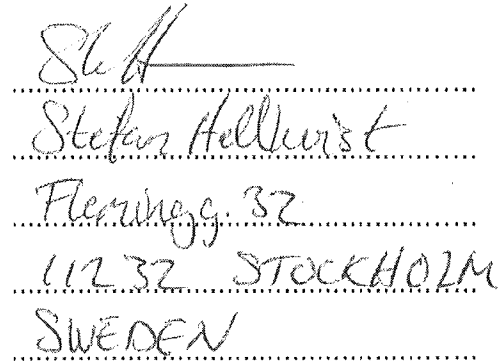 Stefan Hellkvist
Flemingg. 32
11232 STOCKHOLM
SWEDEN